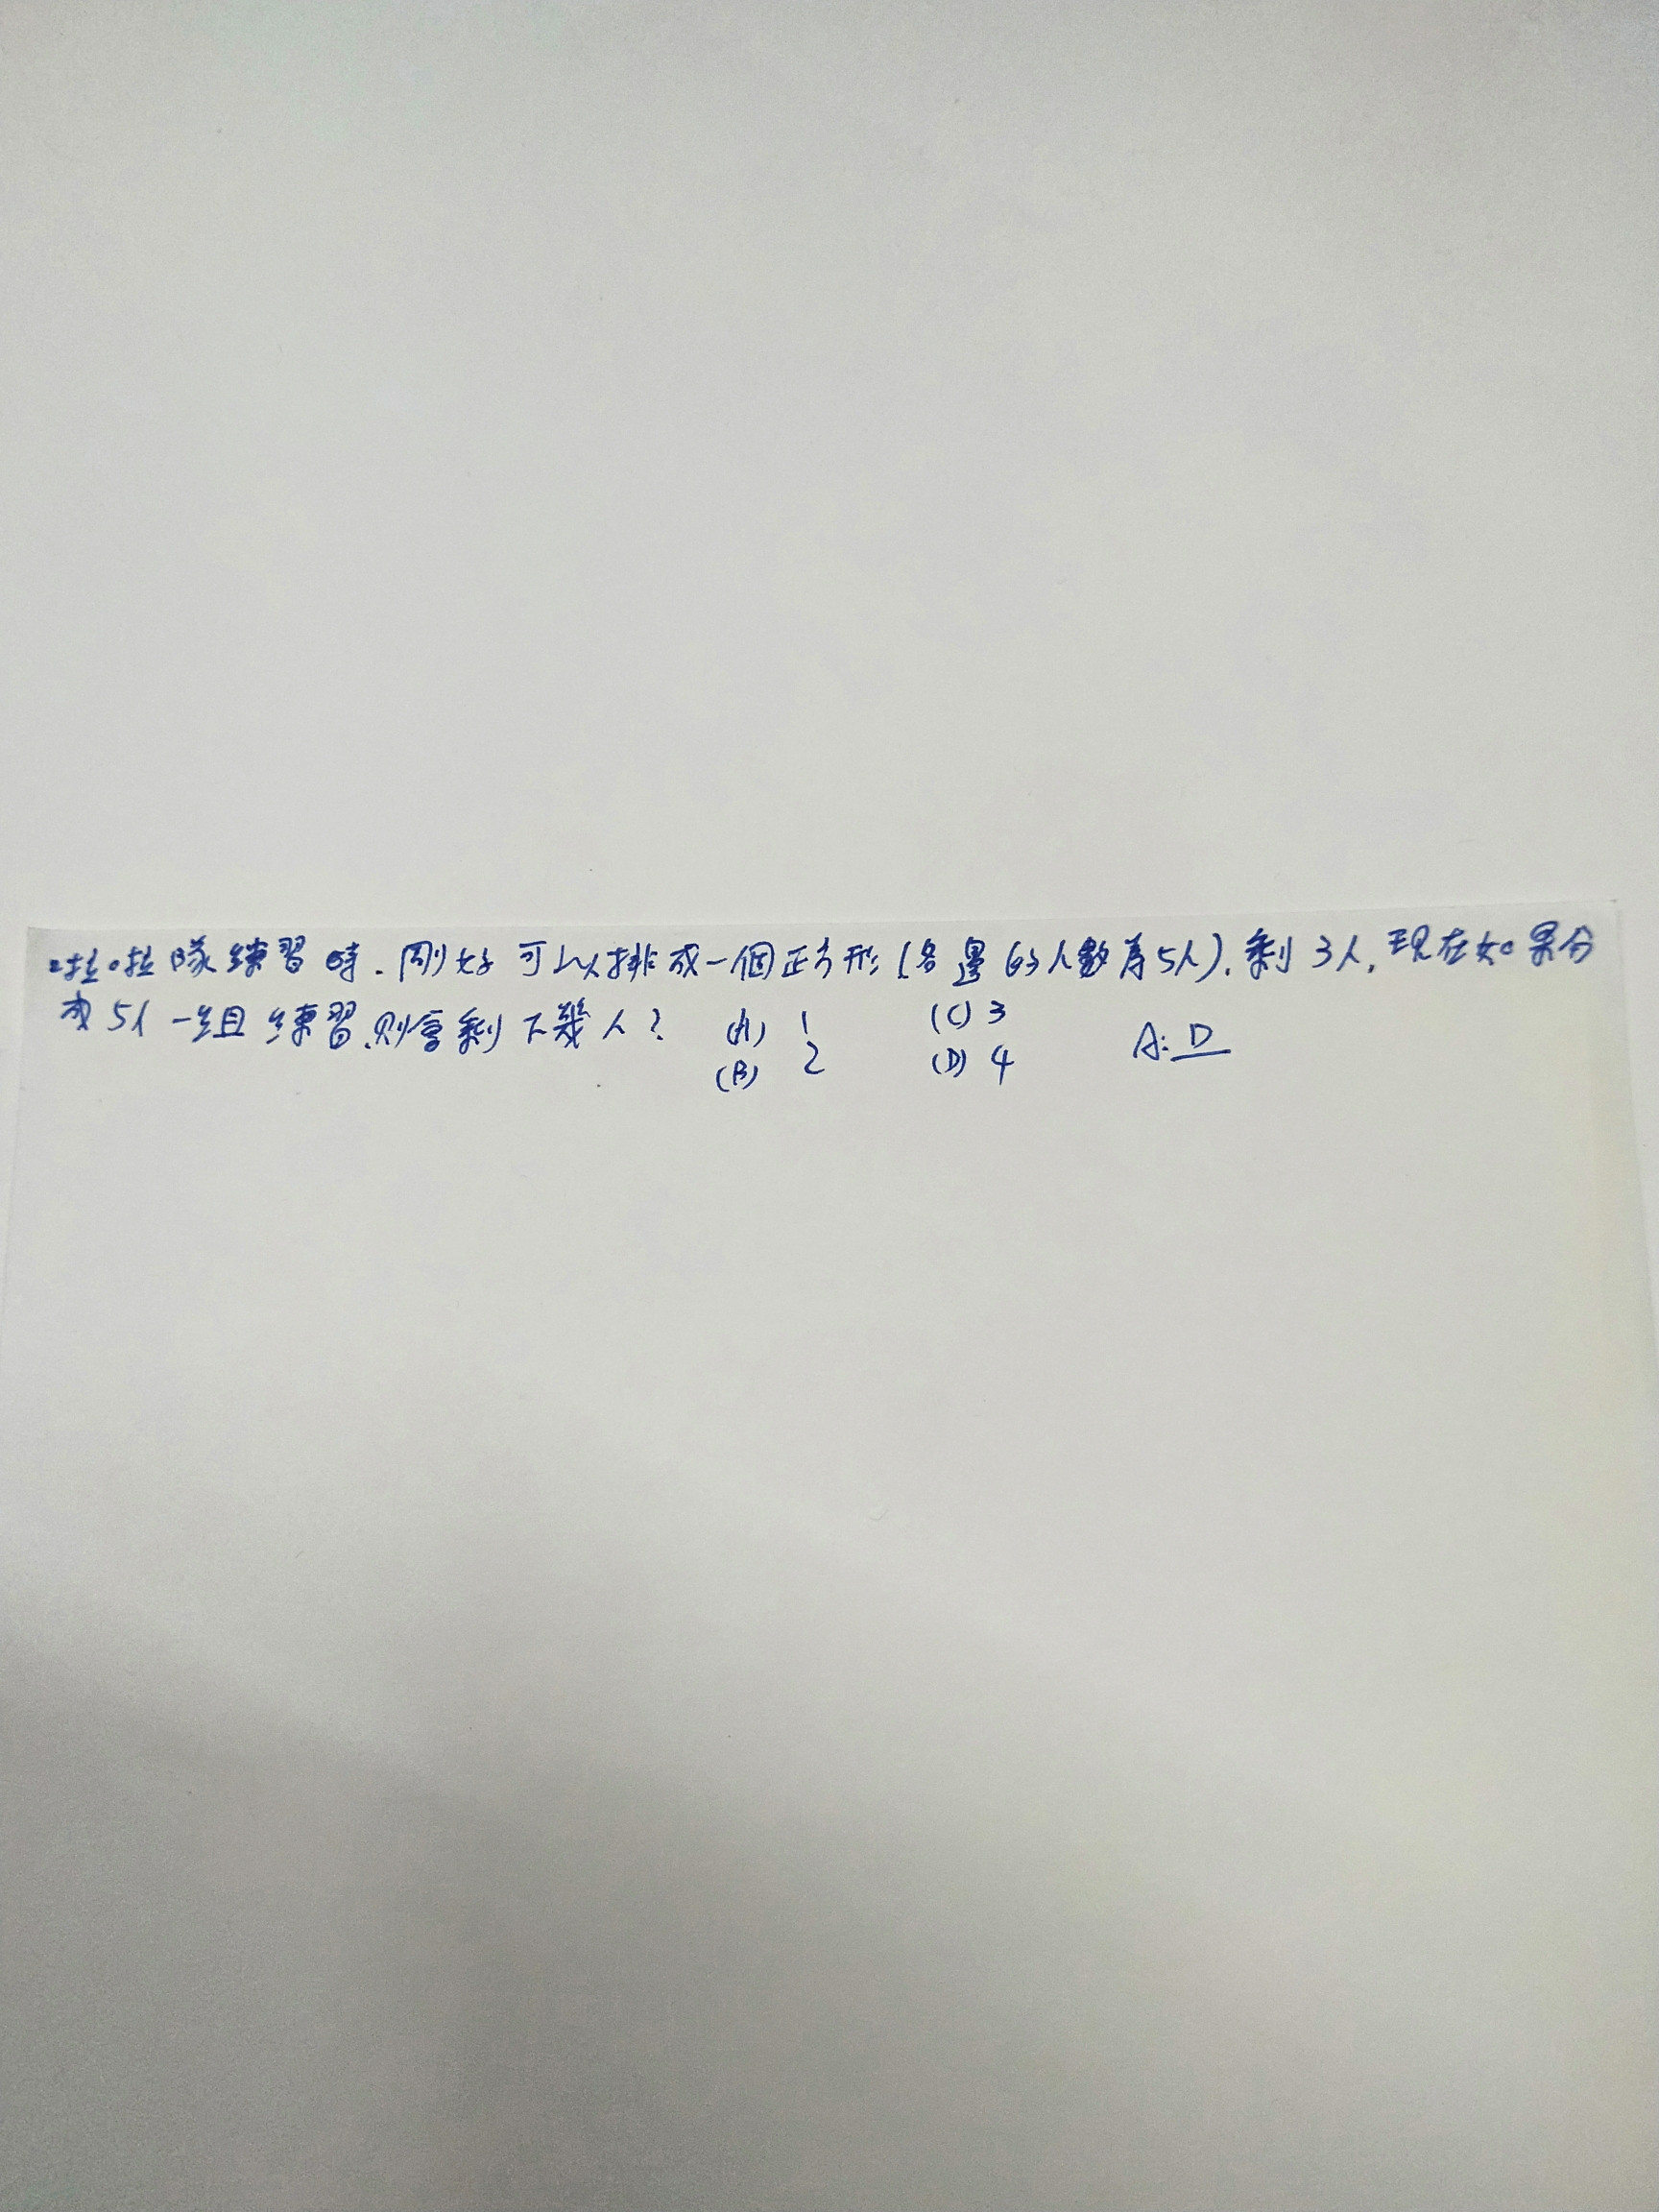 啦啦隊練習時.剛好可以排成一個正方形(各邊的人數為5人).剩3人,現在如果分
成5人一組練習.則會剩下幾人? (A) 1 (C) 3
(B) 2 (D) 4 A: D